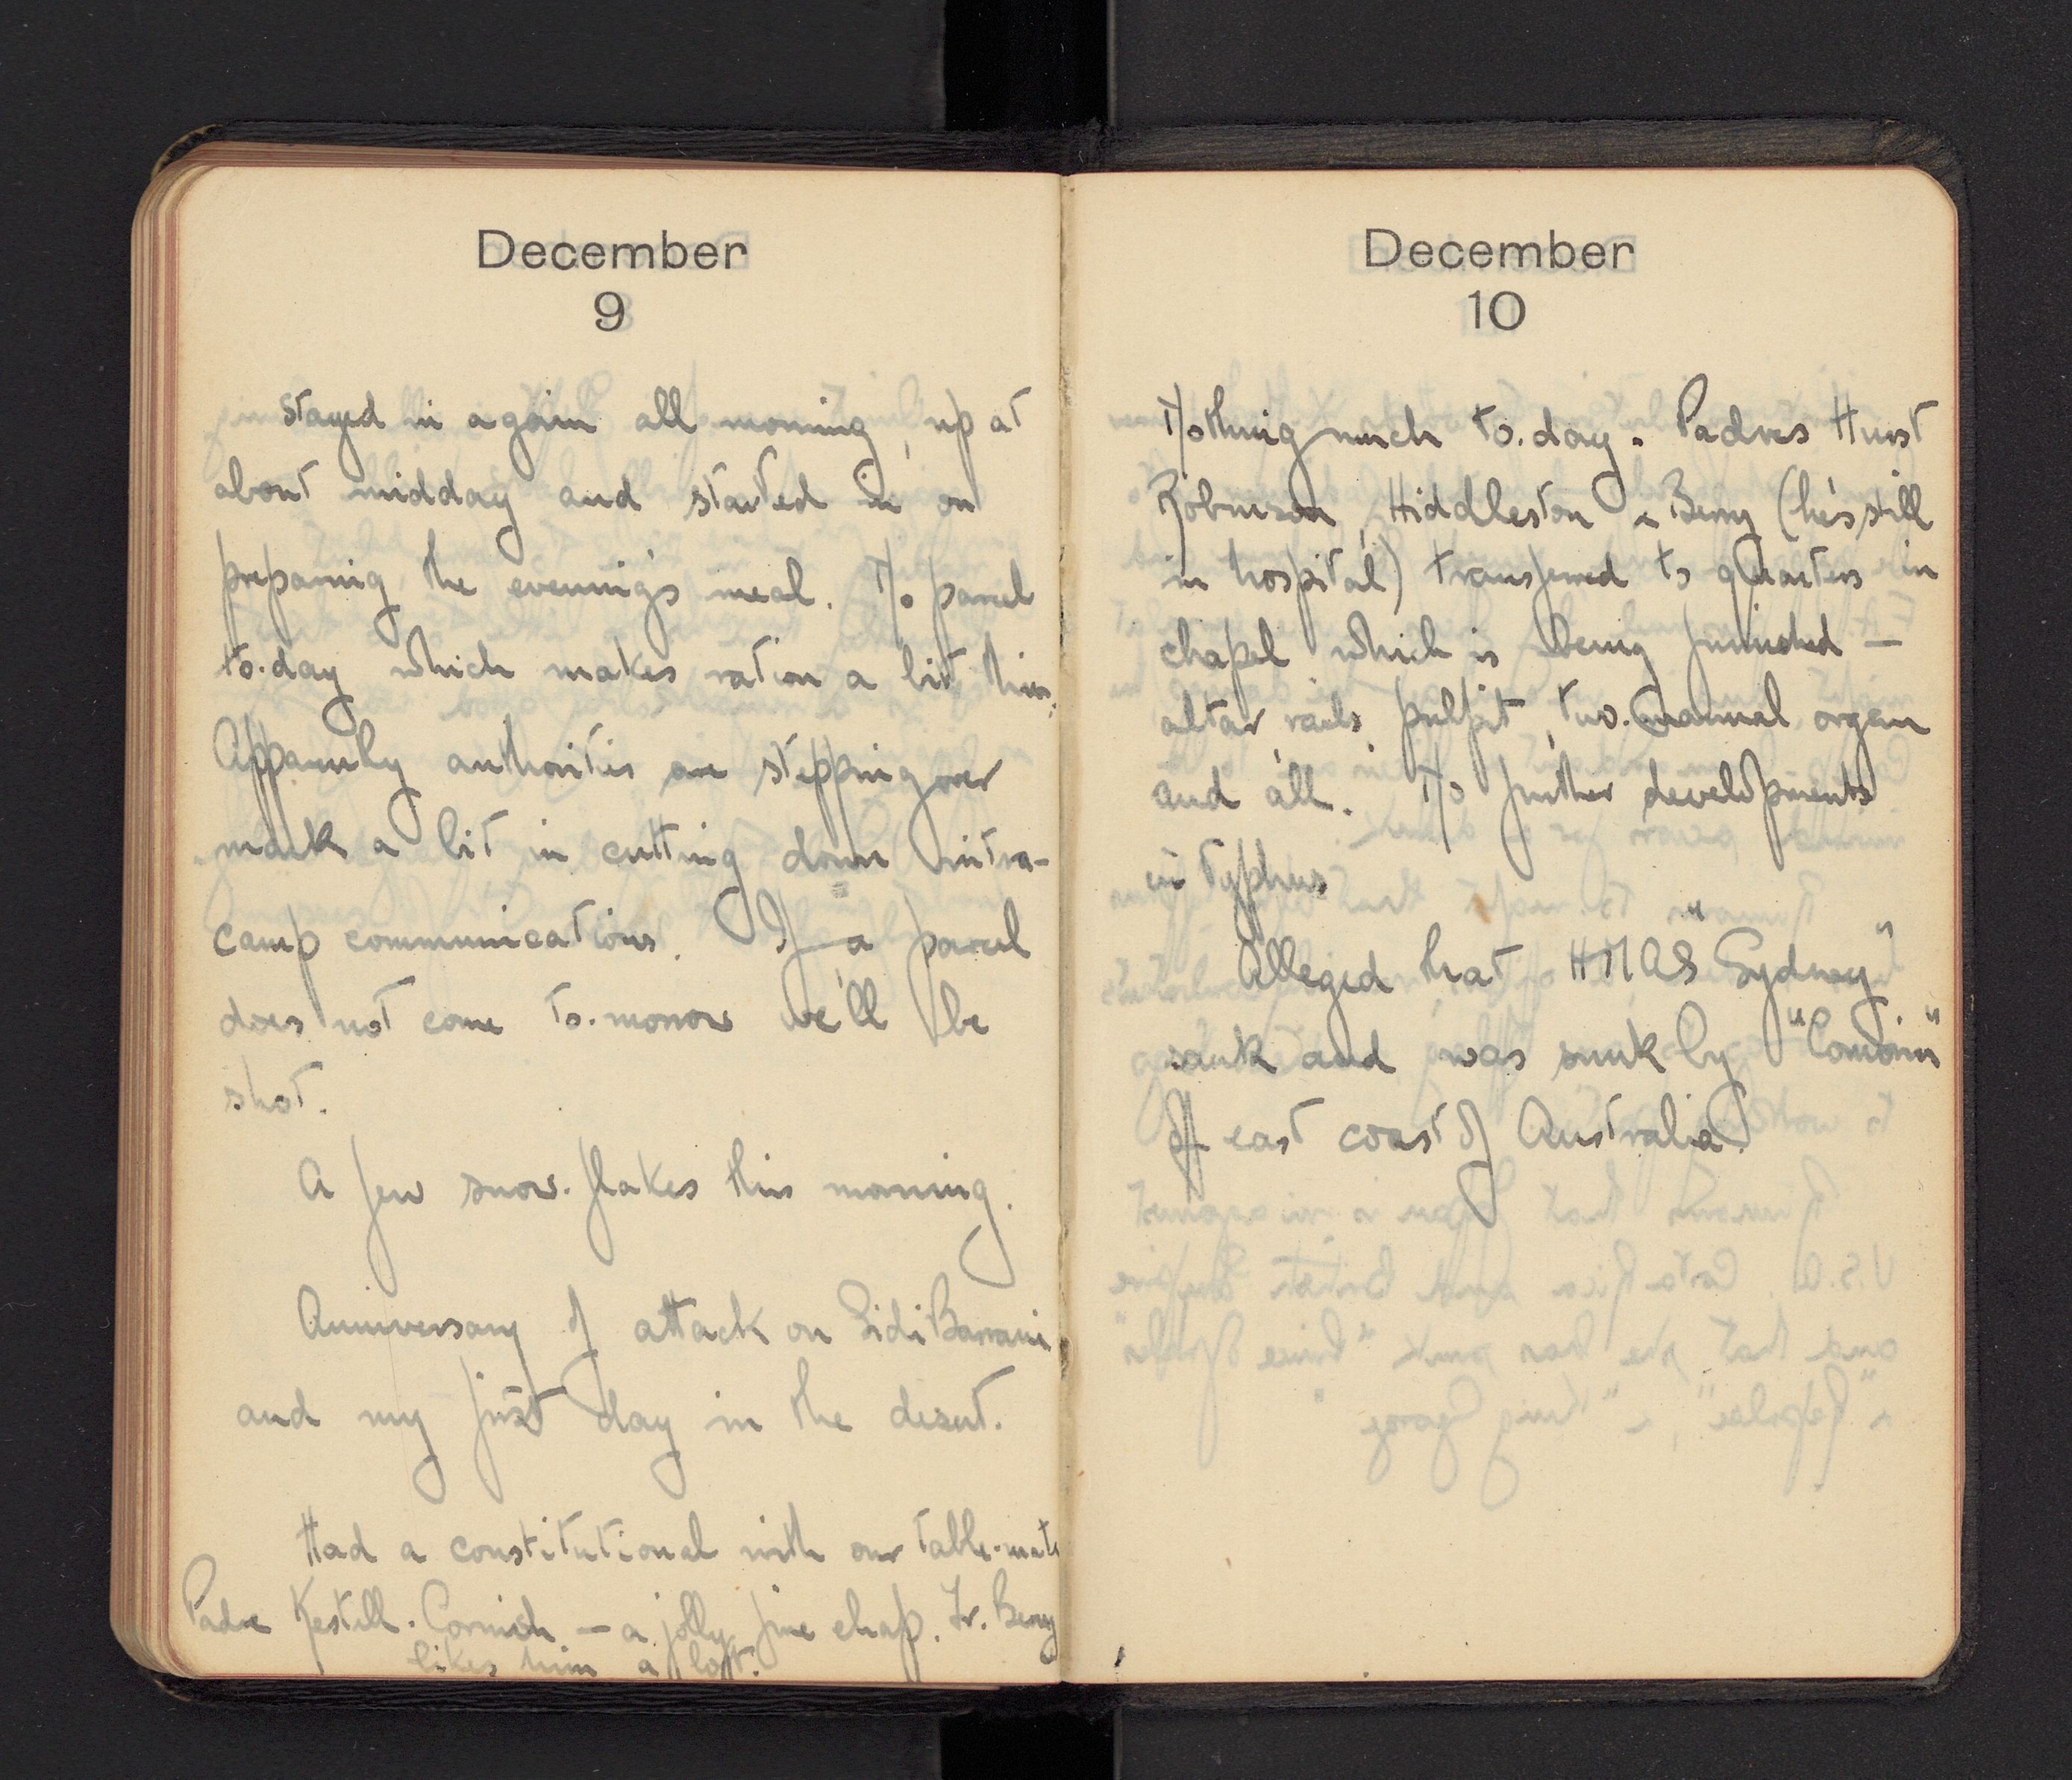 December
9
Stayed in again all morning, up at
about midday and started in on
preparing the evening's meal. No parcel
to.day which makes ration a bit thin.
Apparently authorities are stepping over
mark a bit in cutting down intra-
camp communications. If a parcel
does not come to.morrow we'll be
shot.
A few snow.flakes this morning.
Anniversary of attack on Sidi Barrani
and my first day in the desert.
Had a constitutional with our table.mate
Padre Kestell.Cornish – a jolly fine chap. Fr. Berry
likes him a lot.
December
10
Nothing much to.day. Padres Hurst
Robinson, Hiddleston & Berry (he's still
in hospital) transferred to quarters in
chapel which is being furnished –
altar, rails, pulpit, two.manual organ
and all. No further developments
in typhus
Alleged that HMAS "Sydney"
sank and was sunk by "Comorin"
off east coast of Australia.